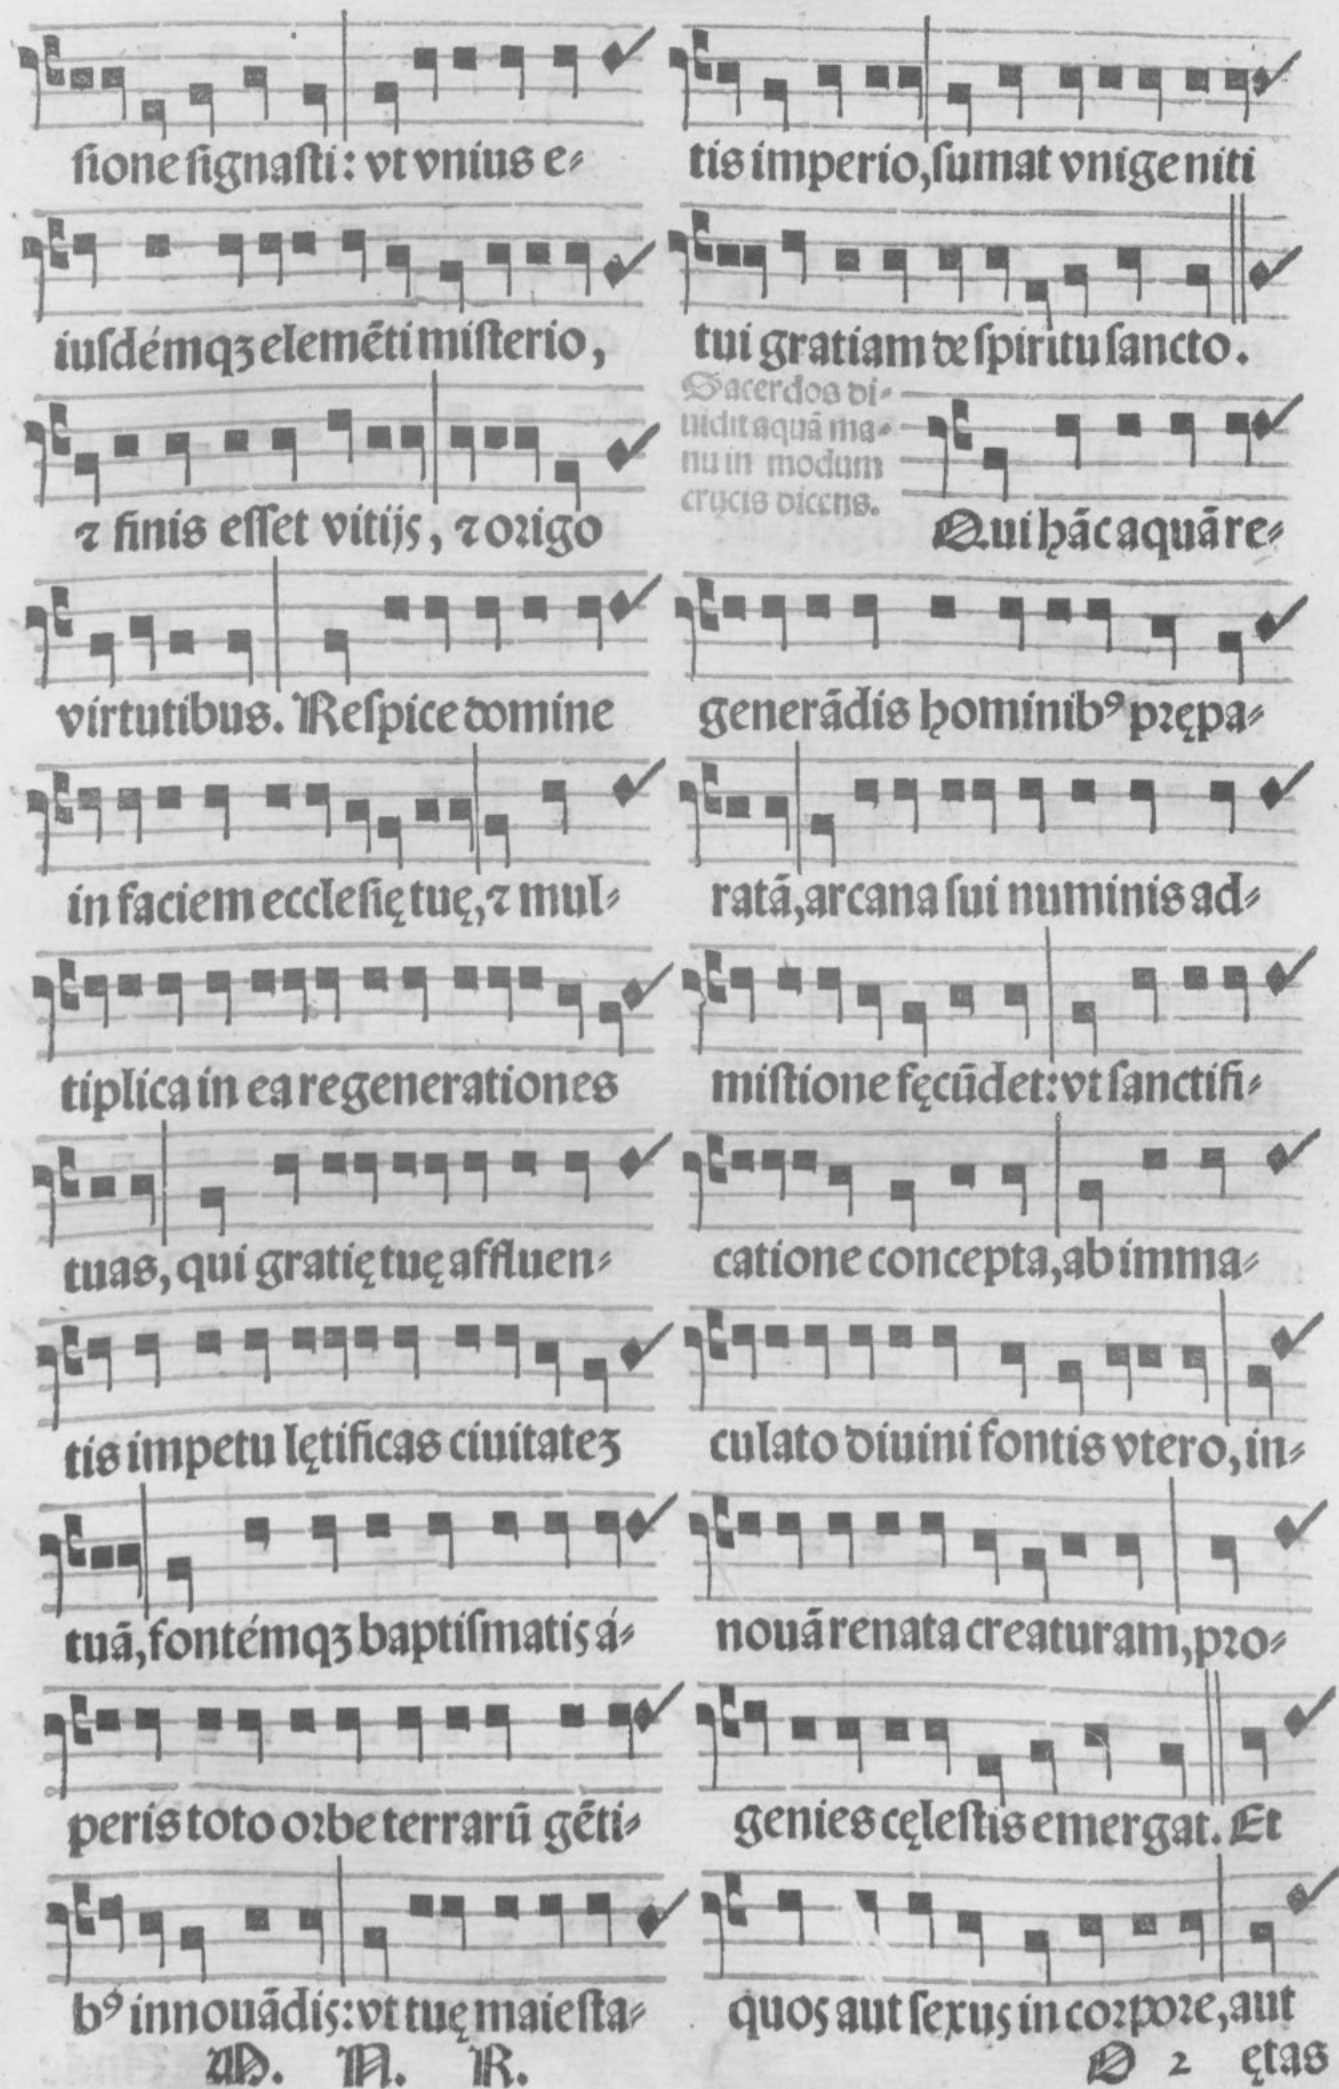 sione signasti: vt vnius e-
iusdémqꝫ elemēti misterio,
⁊ finis esset vitijs, ⁊ origo
virtutibus. Respice domine
in faciem ecclesię tuę, ⁊ mul-
tiplica in ea regenerationes
tuas, qui gratię tuę affluen-
tis impetu lętificas ciuitateꝫ
tuā, fontémqꝫ baptismatis á-
peris toto orbe terrarū gēti-
bꝰ innouādis: vt tuę maiesta-
M. N. R.
tis imperio, sumat vnigeniti
tui gratiam de spiritu sancto.
Sacerdos di-
uidit aquā ma-
nu in modum
crucis dicens.
Qui hāc aquā re-
generādis hominibꝰ prępa-
ratā, arcana sui numinis ad-
mistione fęcūdet: vt sanctifi-
catione concepta, ab imma-
culato diuini fontis vtero, in-
nouā renata creaturam, pro-
genies cęlestis emergat. Et
quos aut sexus in corpore, aut
O 2 ętas